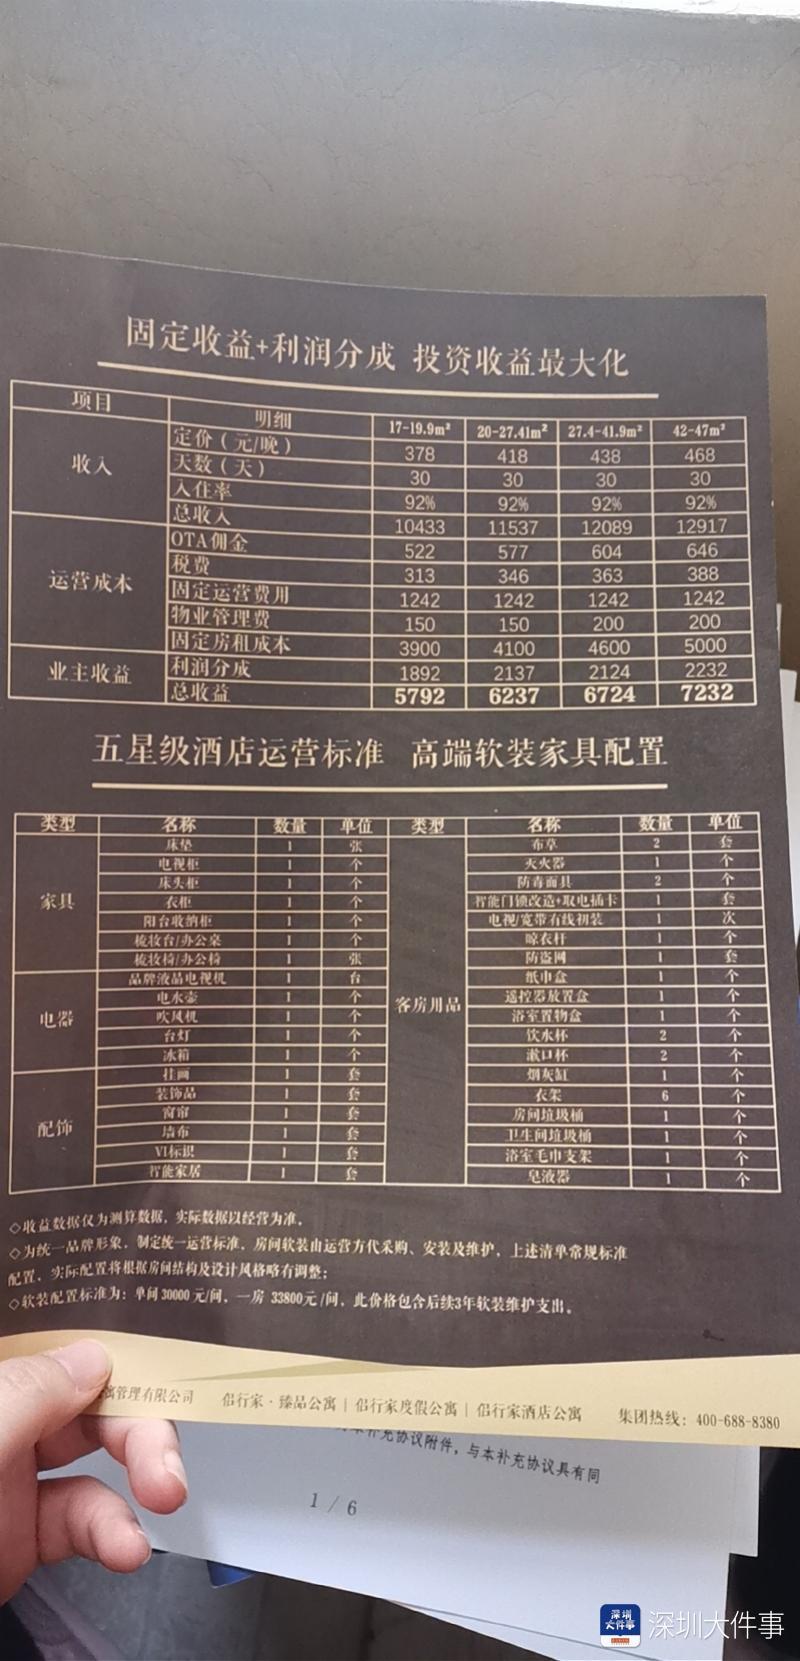 固定收益+利润分成 投资收益最大化
项目 明细 17-19.9m² 20-27.41m² 27.4-41.9m² 42-47m²
收入 定价（元/晚） 378 418 438 468
天数（天） 30 30 30 30
入住率 92% 92% 92% 92%
总收入 10433 11537 12089 12917
运营成本 OTA佣金 522 577 604 646
税费 313 346 363 388
固定运营费用 1242 1242 1242 1242
物业管理费 150 150 200 200
固定房租成本 3900 4100 4600 5000
业主收益 利润分成 1892 2137 2124 2232
总收益 5792 6237 6724 7232
五星级酒店运营标准 高端软装家具配置
类型 名称 数量 单位 类型 名称 数量 单位
家具 床垫 1 张 客房用品 布草 2 套
电视柜 1 个 灭火器 1 个
床头柜 1 个 防毒面具 2 个
衣柜 1 个 智能门锁改造+取电插卡 1 套
阳台收纳柜 1 个 电视/宽带有线初装 1 次
梳妆台/办公桌 1 个 晾衣杆 1 个
梳妆椅/办公椅 1 张 防盗网 1 套
电器 品牌液晶电视机 1 台 纸巾盒 1 个
电水壶 1 个 遥控器放置盒 1 个
吹风机 1 个 浴室置物盒 1 个
台灯 1 个 饮水杯 2 个
冰箱 1 个 漱口杯 2 个
配饰 挂画 1 套 烟灰缸 1 个
装饰品 1 套 衣架 6 个
窗帘 1 套 房间垃圾桶 1 个
墙布 1 套 卫生间垃圾桶 1 个
VI标识 1 套 浴室毛巾支架 1 个
智能家居 1 套 皂液器 1 个
◇收益数据仅为测算数据，实际数据以经营为准。
◇为统一品牌形象，制定统一运营标准，房间软装由运营方代采购、安装及维护，上述清单常规标准
配置，实际配置将根据房间结构及设计风格略有调整；
◇软装配置标准为：单间30000元/间，一房 33800元/间，此价格包含后续3年软装维护支出。
寓管理有限公司 侣行家·臻品公寓 | 侣行家度假公寓 | 侣行家酒店公寓 集团热线：400-688-8380
本补充协议附件，与本补充协议具有同
1 / 6
深圳
大件事
深圳大件事